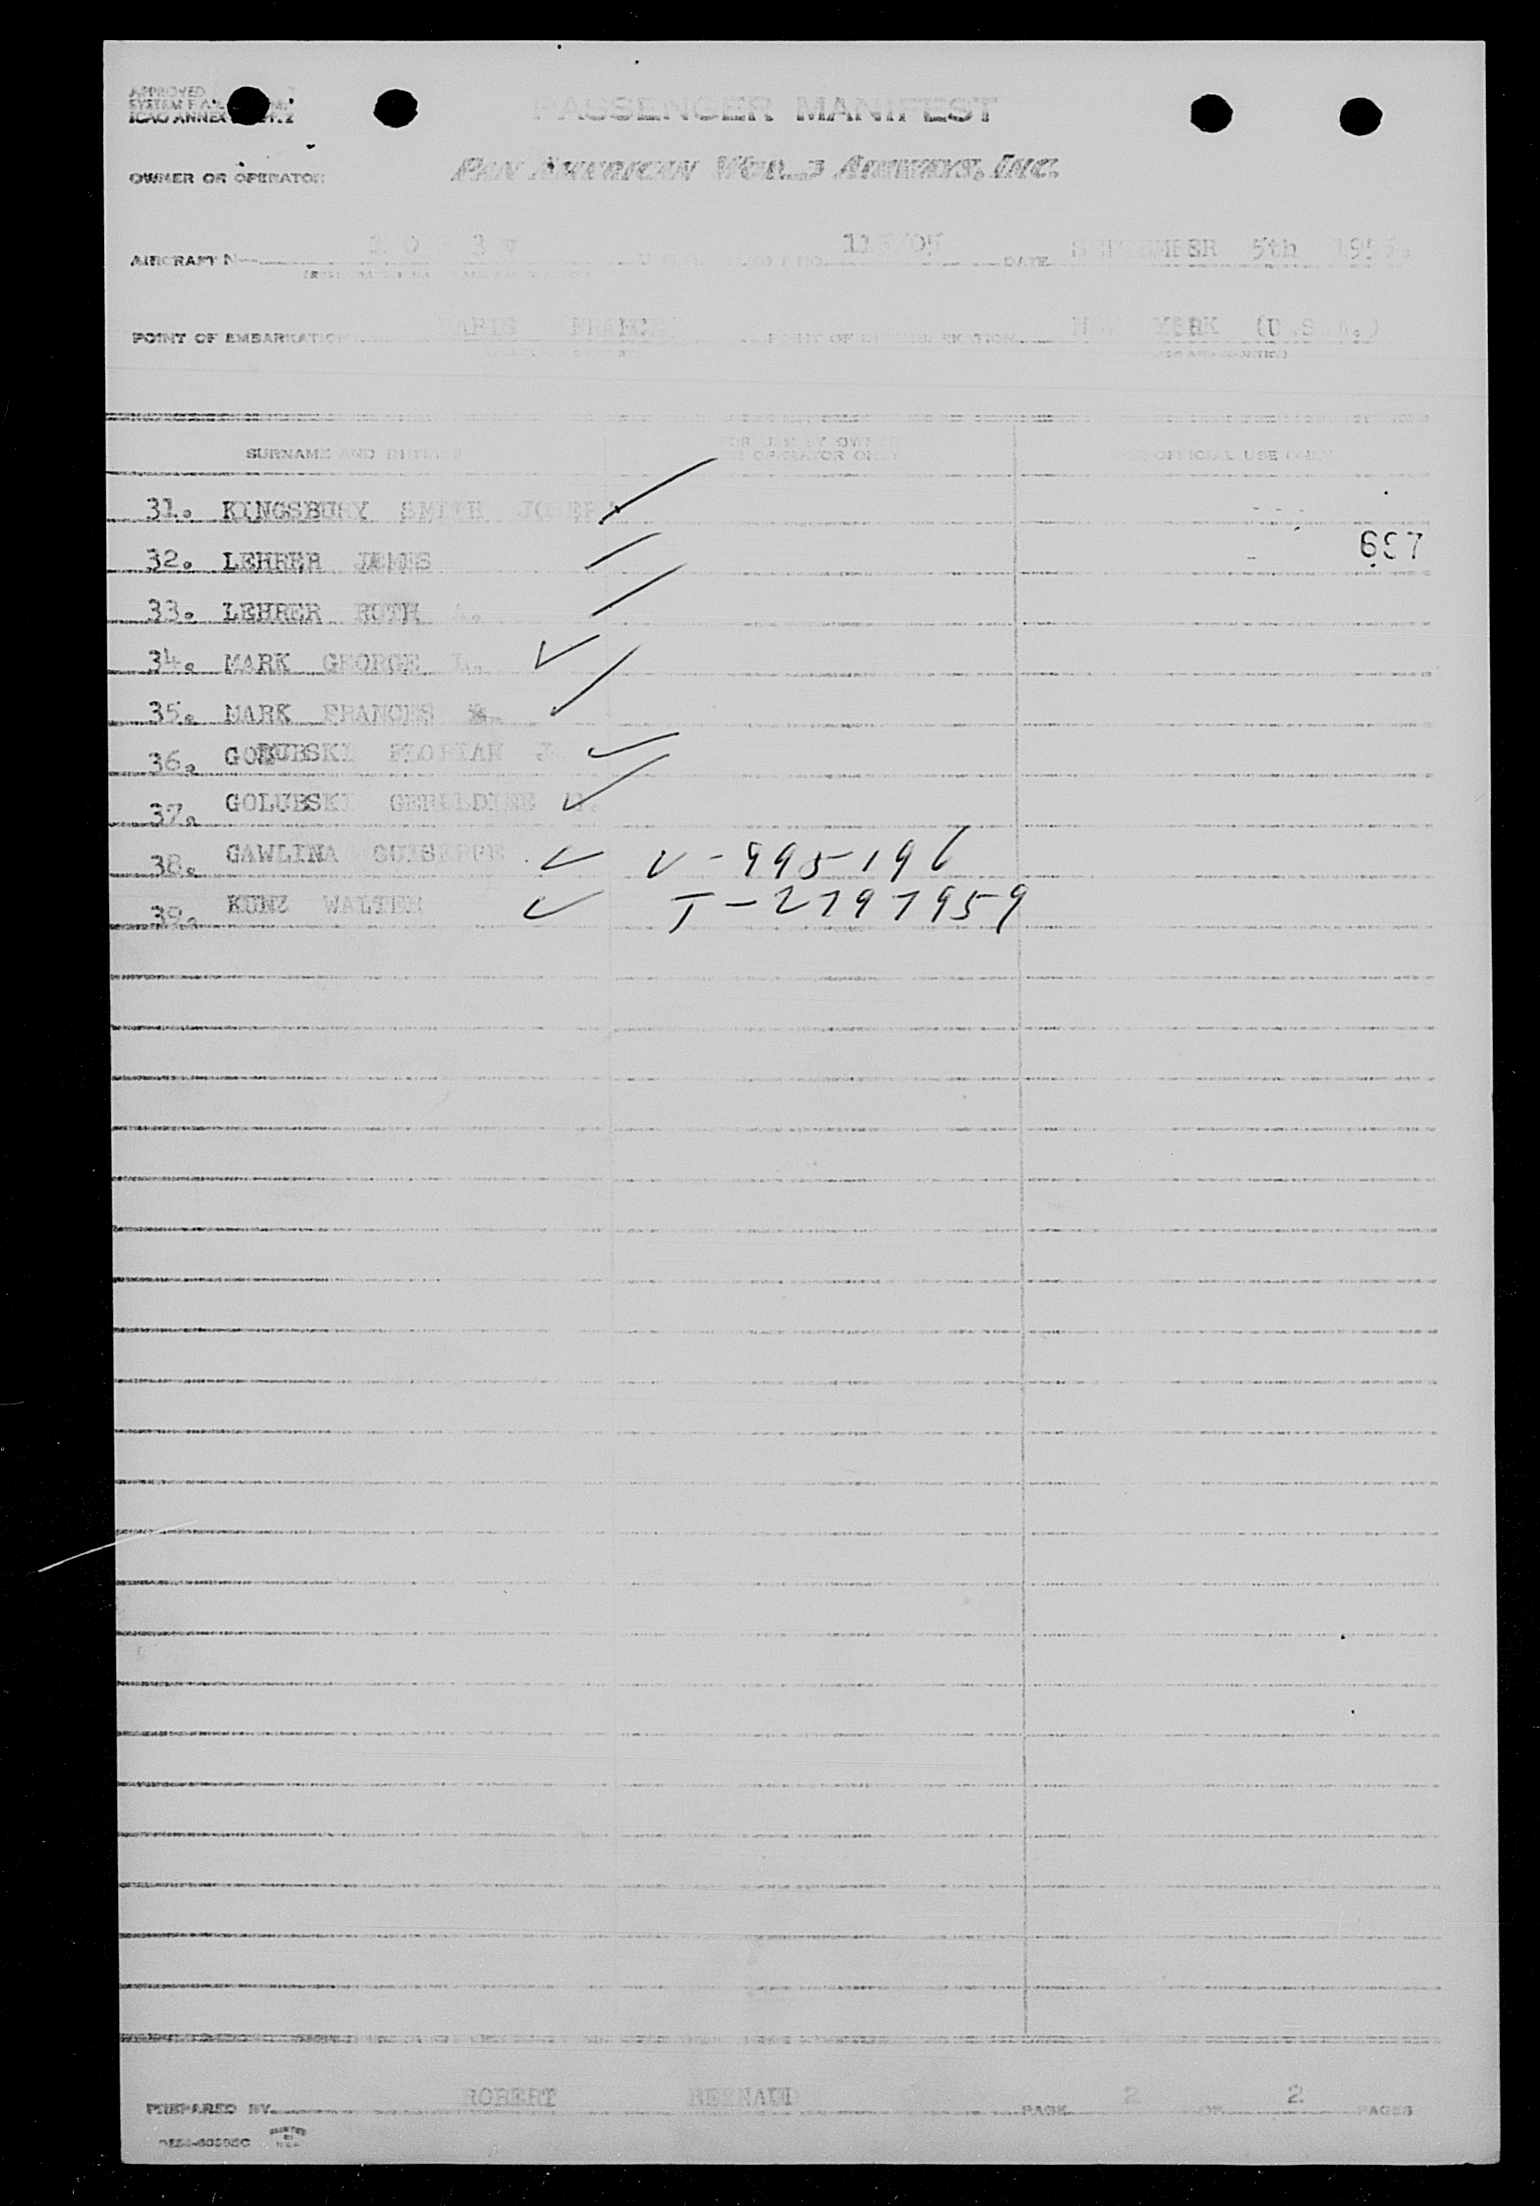 APPROVED
SYSTEM F.A.L.
ICAO ANNEX 2
PASSENGER MANIFEST
OWNER OR OPERATOR
PAN AMERICAN WORLD AIRWAYS, INC.
AIRCRAFT N— DATE SEPTEMBER 5th
POINT OF EMBARKATION PARIS FRANCE POINT OF NEW YORK (U.S.A.)
SURNAME AND INITIALS FOR USE BY OWNER OR OPERATOR ONLY FOR OFFICIAL USE ONLY
31. KINGSBURY SMITH JOSEPH
697
32. LEHRER JAMES
33. LEHRER RUTH A.
34. MARK GEORGE L.
35. MARK FRANCES
36. FLORIAN J.
37. GOLUBSKI GERALDINE H.
38. GAWLINA GUISEPPE V-995196
39. KUNZ WALTER T-2797959
PREPARED BY ROBERT RENAUD PAGE 2 OF 2 PAGES